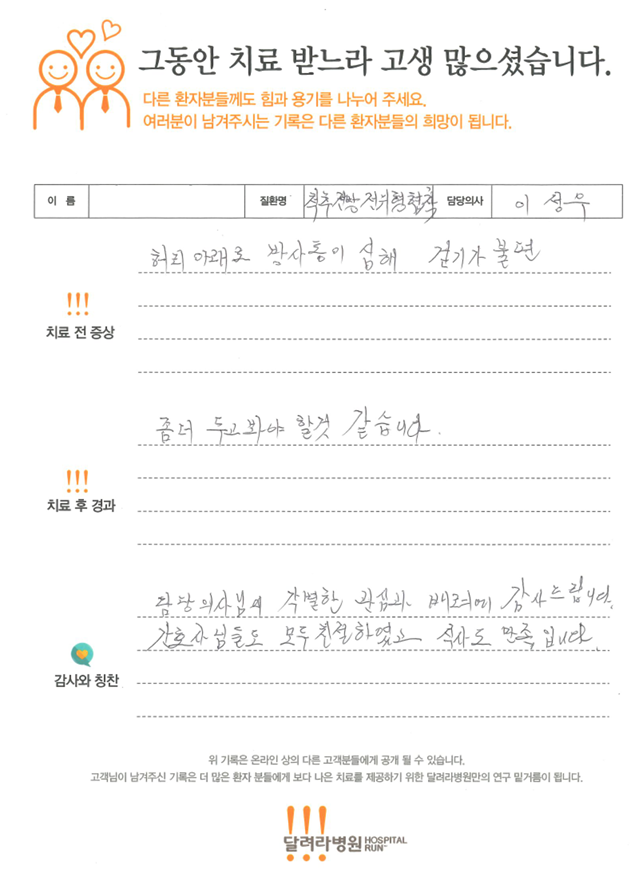 그동안 치료 받느라 고생 많으셨습니다.
다른 환자분들께도 힘과 용기를 나누어 주세요.
여러분이 남겨주시는 기록은 다른 환자분들의 희망이 됩니다.
이 름 질환명 척추전방전위형협착 담당의사 이성우
허리 아래로 방사통이 심해 걷기가 불편
!!!
치료 전 증상
좀더 두고봐야 할것 같습니다.
!!!
치료 후 경과
담당의사님의 각별한 관심과 배려에 감사드립니다.
간호사님들도 모두 친절하였고 식사도 만족입니다.
감사와 칭찬
위 기록은 온라인 상의 다른 고객분들에게 공개 될 수 있습니다.
고객님이 남겨주신 기록은 더 많은 환자 분들에게 보다 나은 치료를 제공하기 위한 달려라병원만의 연구 밑거름이 됩니다.
!!!
달려라병원 HOSPITAL RUN™